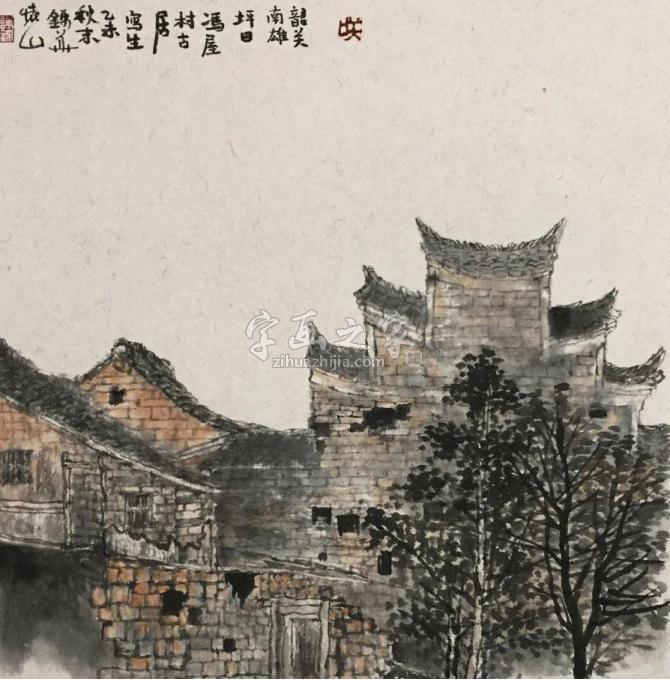 韶关
南雄
坪田
冯屋
村古
居
写生
乙未
秋末
怀山
字画之家
zihuazhijia.com